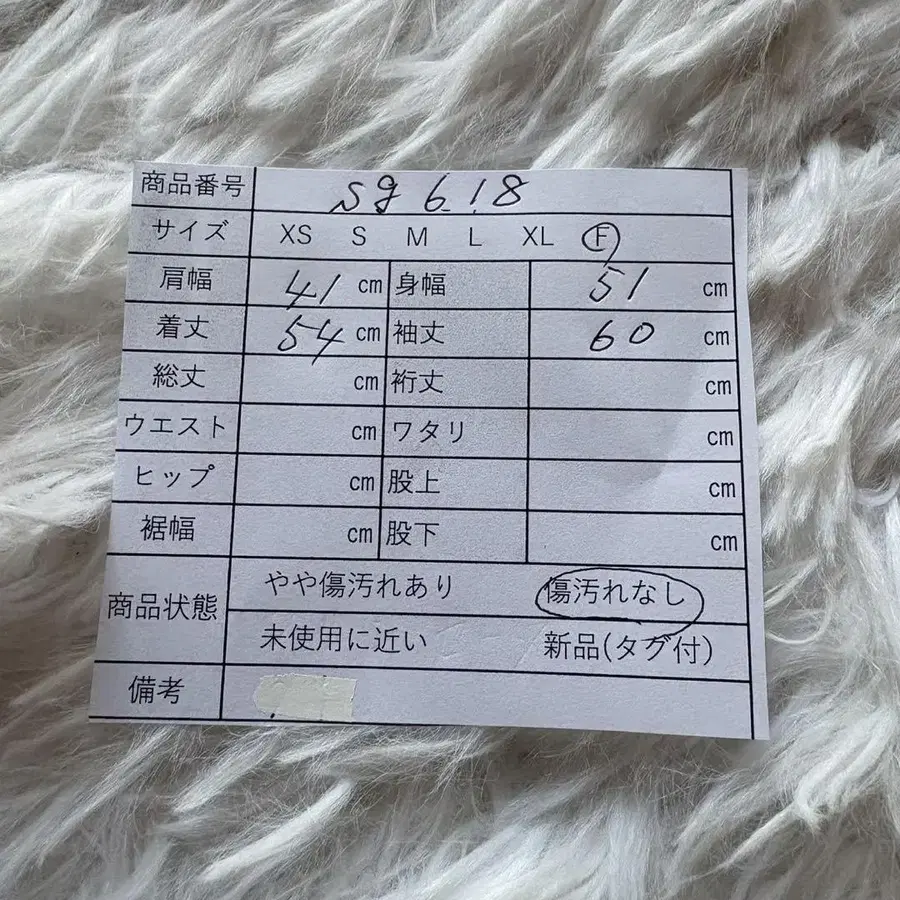 商品番号 sg 6.18
サイズ XS S M L XL F
肩幅 41 cm 身幅 51 cm
着丈 54 cm 袖丈 60 cm
総丈 cm 裄丈 cm
ウエスト cm ワタリ cm
ヒップ cm 股上 cm
裾幅 cm 股下 cm
商品状態 やや傷汚れあり 傷汚れなし
未使用に近い 新品(タグ付)
備考